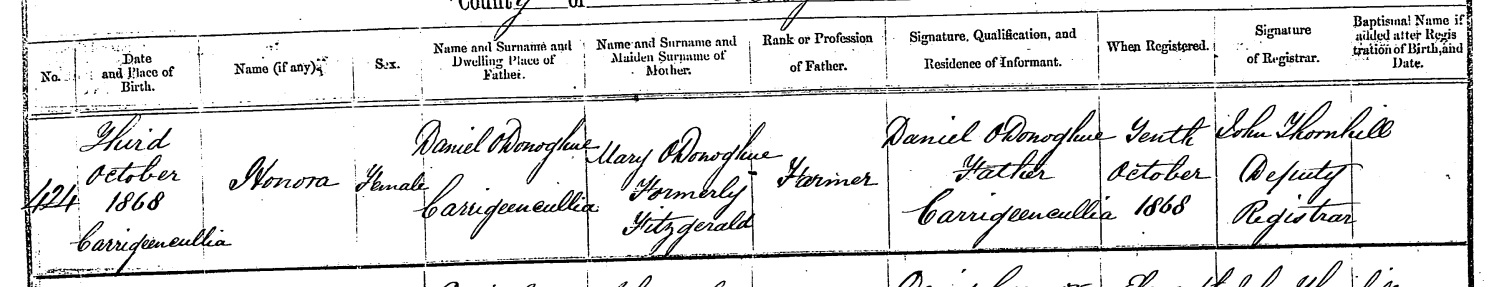 County of
No.
Date
and Place of
Birth.
Name (if any).
Sex.
Name and Surname and
Dwelling Place of
Father.
Name and Surname and
Maiden Surname of
Mother.
Rank or Profession
of Father.
Signature, Qualification, and
Residence of Informant.
When Registered.
Signature
of Registrar.
Baptismal Name if
added after Regis
tration of Birth, and
Date.
424
Third
October
1868
Carrigeencullia
Honora
Female
Daniel O'Donoghue
Carrigeencullia
Mary O'Donoghue
Formerly
Fitzgerald
Farmer
Daniel O'Donoghue
Father
Carrigeencullia
Tenth
October
1868
John Thornhill
Deputy
Registrar